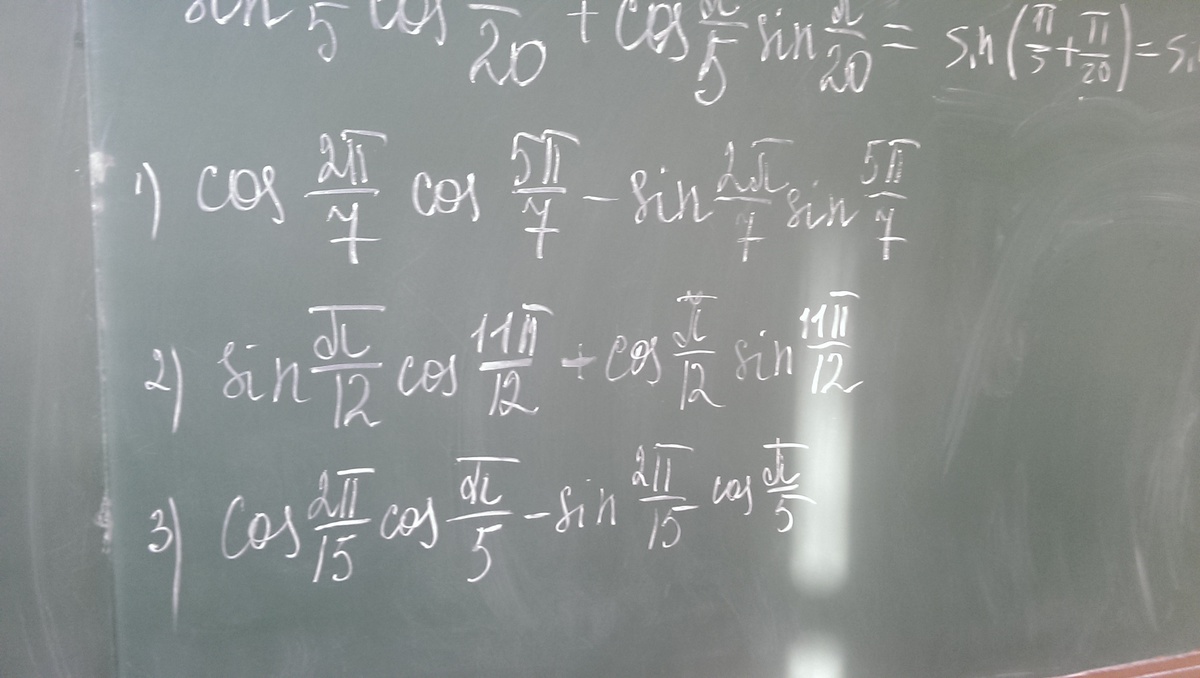 sin π/5 cos π/20 + cos π/5 sin π/20 = sin(π/5 + π/20) = si
1) cos 2π/7 cos 5π/7 - sin 2π/7 sin 5π/7
2) sin π/12 cos 11π/12 + cos π/12 sin 11π/12
3) cos 2π/15 cos π/5 - sin 2π/15 cos π/5